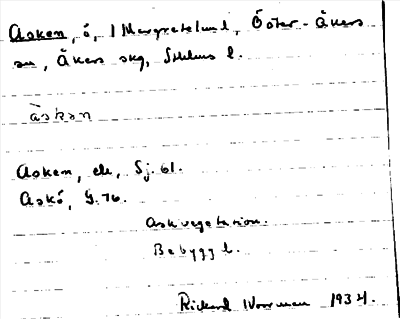 Asken, ö, 1 Margretelund, Öster-Åkers
sn, Åkers skg, Sthlms l.
àskən
Asken, ek, Sj. 61.
Askö, G. 76.
Askvegetation.
Bebyggd.
Rickard Wornman 1934.